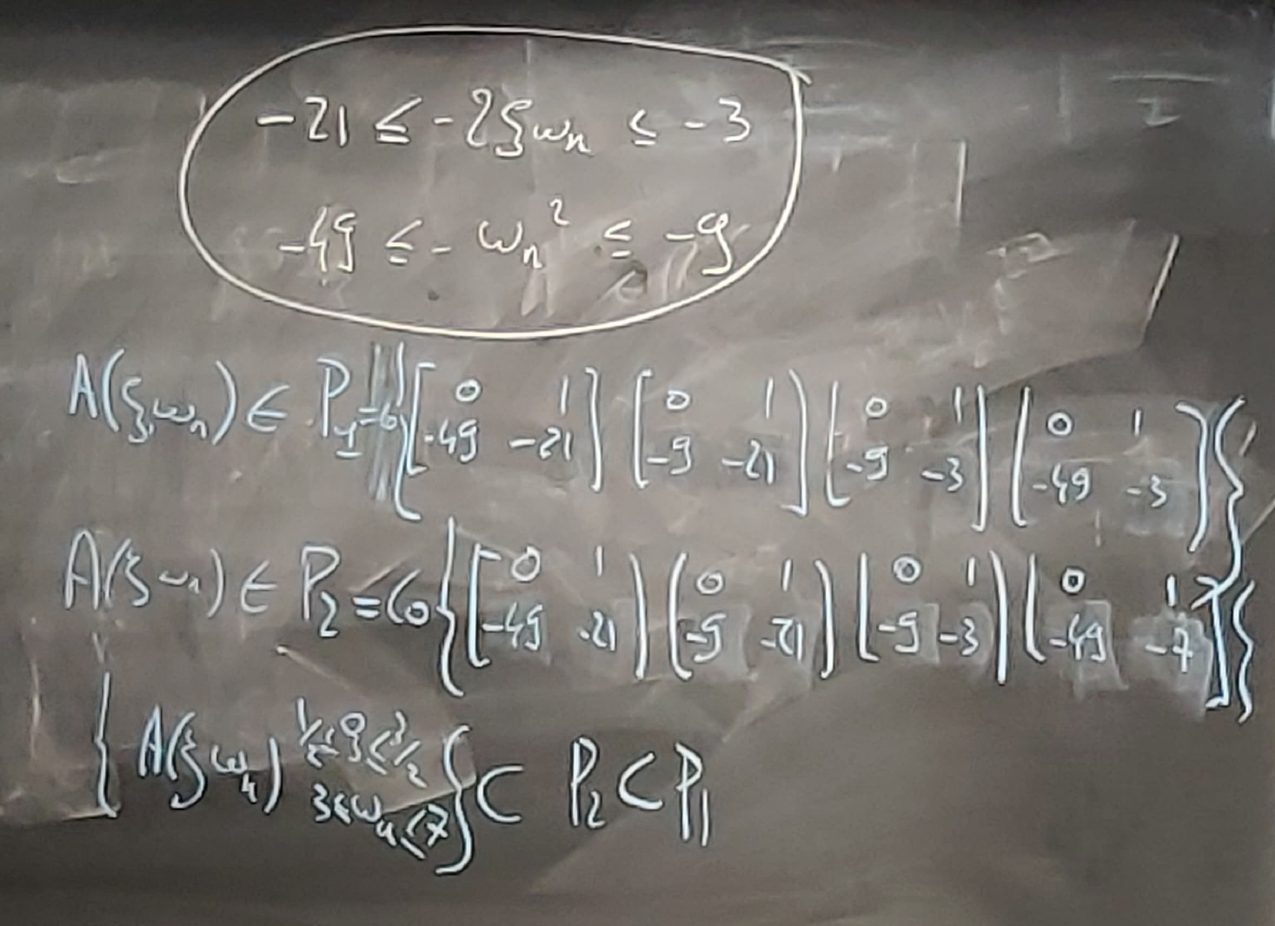 -21 ≤ -2ξωn ≤ -3
-49 ≤ - ωn² ≤ -9
A(ξ,ωn) ∈ P1=Co{[0 1; -49 -21] [0 1; -9 -21] [0 1; -9 -3] [0 1; -49 -3]}
A(ξ ωn) ∈ P2=Co{[0 1; -49 -21] [0 1; -9 -21] [0 1; -9 -3] [0 1; -49 -7]}
{A(ξ ωn) 1/2≤ξ≤3/2 3≤ωn≤7} ⊂ P2 ⊂ P1